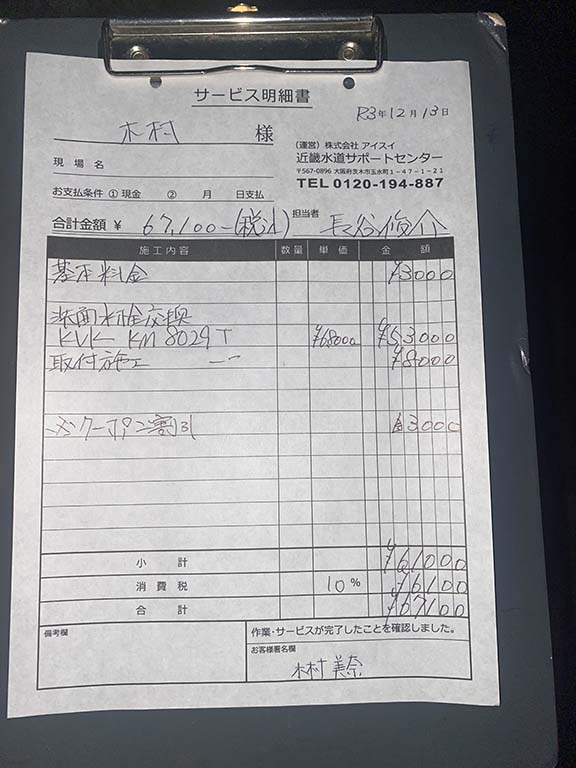 サービス明細書
R3年12月13日
木村 様
(運営) 株式会社 アイスイ
近畿水道サポートセンター
〒567-0896 大阪府茨木市玉水町1-47-1-21
TEL 0120-194-887
現場名
お支払条件 ①現金 ② 月 日支払
合計金額 ¥ 67,100-(税込) 担当者 長谷俊介
施工内容 数量 単価 金額
基本料金 ¥3000
洗面水栓交換
KVK KM8029T ¥68000 ¥53000
取付施工 ¥8000
クーポン割引 3000
小計 ¥61000
消費税 10% ¥6100
合計 ¥67100
備考欄
作業・サービスが完了したことを確認しました。
お客様署名欄
木村 美奈